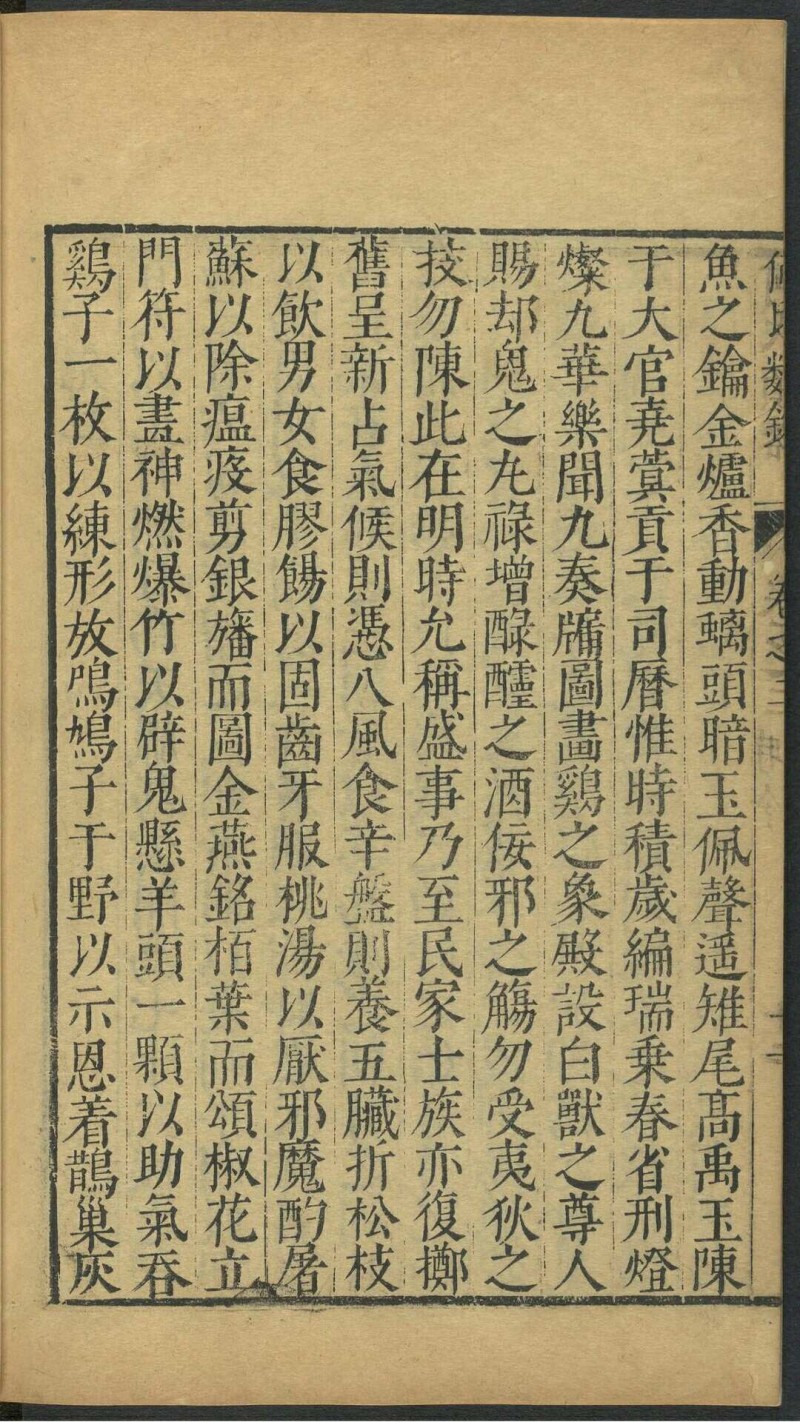 氏類鎔 卷之三
魚之鑰金爐香動螭頭暗玉佩聲遥雉尾髙禹玉陳
于大官堯蓂貢于司曆惟時積歲編瑞乗春省刑燈
燦九華樂聞九奏牖圖畵鷄之象殿設白獸之尊人
賜却鬼之丸祿增醁醽之酒佞邪之觴勿受夷狄之
技勿陳此在明時允稱盛事乃至民家士族亦復擲
舊呈新占氣候則憑八風食辛盤則養五臟折松枝
以飲男女食膠餳以固齒牙服桃湯以厭邪魔酌屠
蘇以除瘟疫剪銀旛而圖金燕銘栢葉而頌椒花立
門符以畫神燃爆竹以辟鬼懸羊頭一顆以助氣吞
鷄子一枚以練形放鳴鳩子于野以示恩着鵲巢灰